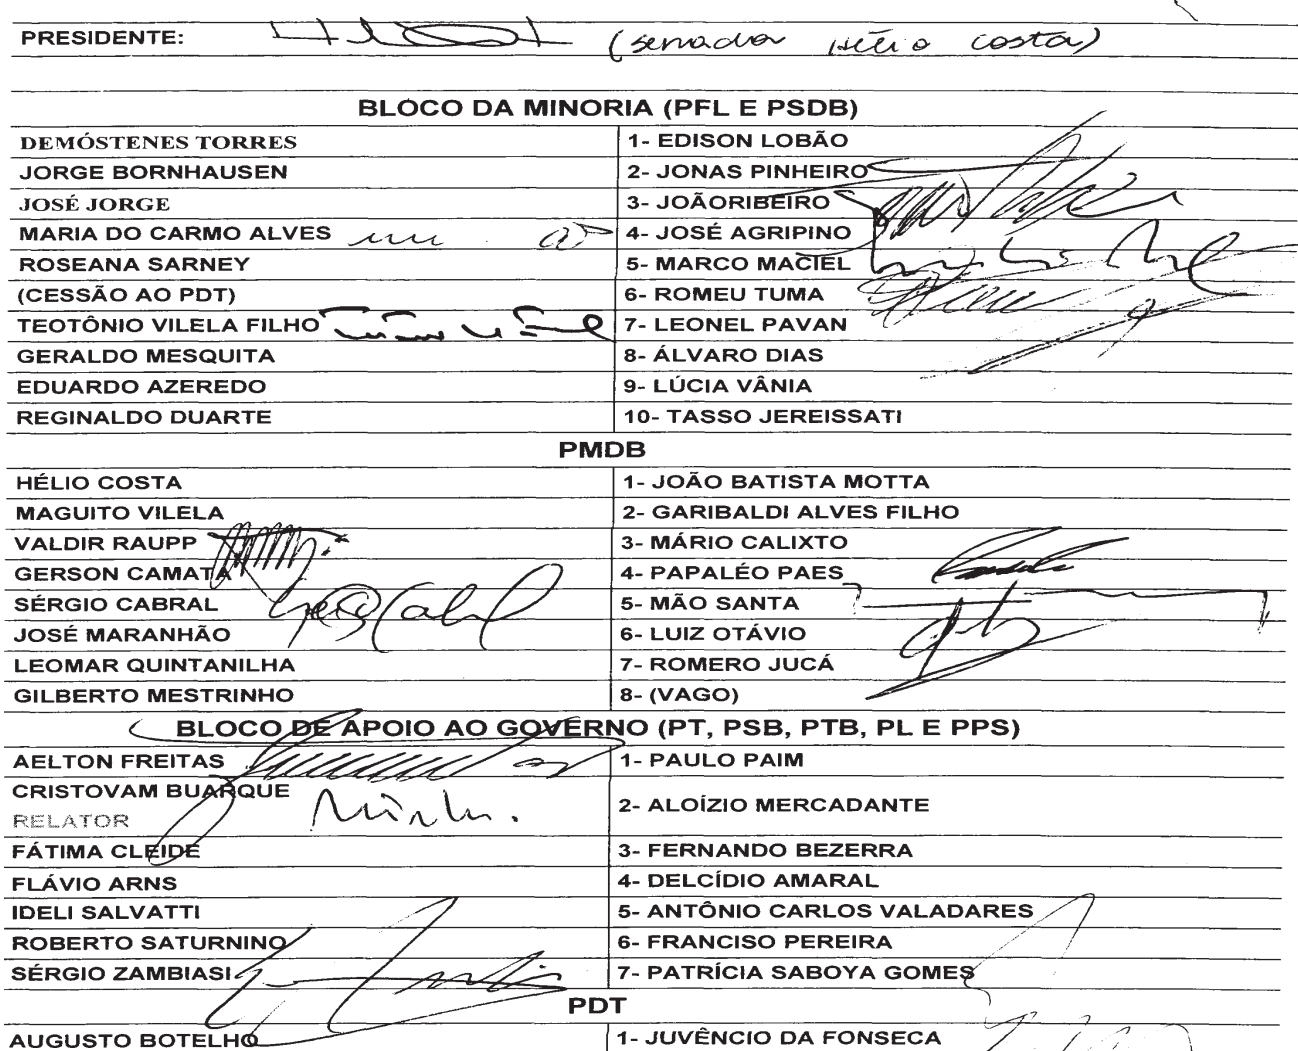 PRESIDENTE: (senador Hélio Costa)
BLOCO DA MINORIA (PFL E PSDB)
DEMÓSTENES TORRES 1- EDISON LOBÃO
JORGE BORNHAUSEN 2- JONAS PINHEIRO
JOSÉ JORGE 3- JOÃORIBEIRO
MARIA DO CARMO ALVES 4- JOSÉ AGRIPINO
ROSEANA SARNEY 5- MARCO MACIEL
(CESSÃO AO PDT) 6- ROMEU TUMA
TEOTÔNIO VILELA FILHO 7- LEONEL PAVAN
GERALDO MESQUITA 8- ÁLVARO DIAS
EDUARDO AZEREDO 9- LÚCIA VÂNIA
REGINALDO DUARTE 10- TASSO JEREISSATI
PMDB
HÉLIO COSTA 1- JOÃO BATISTA MOTTA
MAGUITO VILELA 2- GARIBALDI ALVES FILHO
VALDIR RAUPP 3- MÁRIO CALIXTO
GERSON CAMATA 4- PAPALÉO PAES
SÉRGIO CABRAL 5- MÃO SANTA
JOSÉ MARANHÃO 6- LUIZ OTÁVIO
LEOMAR QUINTANILHA 7- ROMERO JUCÁ
GILBERTO MESTRINHO 8- (VAGO)
BLOCO DE APOIO AO GOVERNO (PT, PSB, PTB, PL E PPS)
AELTON FREITAS 1- PAULO PAIM
CRISTOVAM BUARQUE
RELATOR 2- ALOÍZIO MERCADANTE
FÁTIMA CLEIDE 3- FERNANDO BEZERRA
FLÁVIO ARNS 4- DELCÍDIO AMARAL
IDELI SALVATTI 5- ANTÔNIO CARLOS VALADARES
ROBERTO SATURNINO 6- FRANCISO PEREIRA
SÉRGIO ZAMBIASI 7- PATRÍCIA SABOYA GOMES
PDT
AUGUSTO BOTELHO 1- JUVÊNCIO DA FONSECA